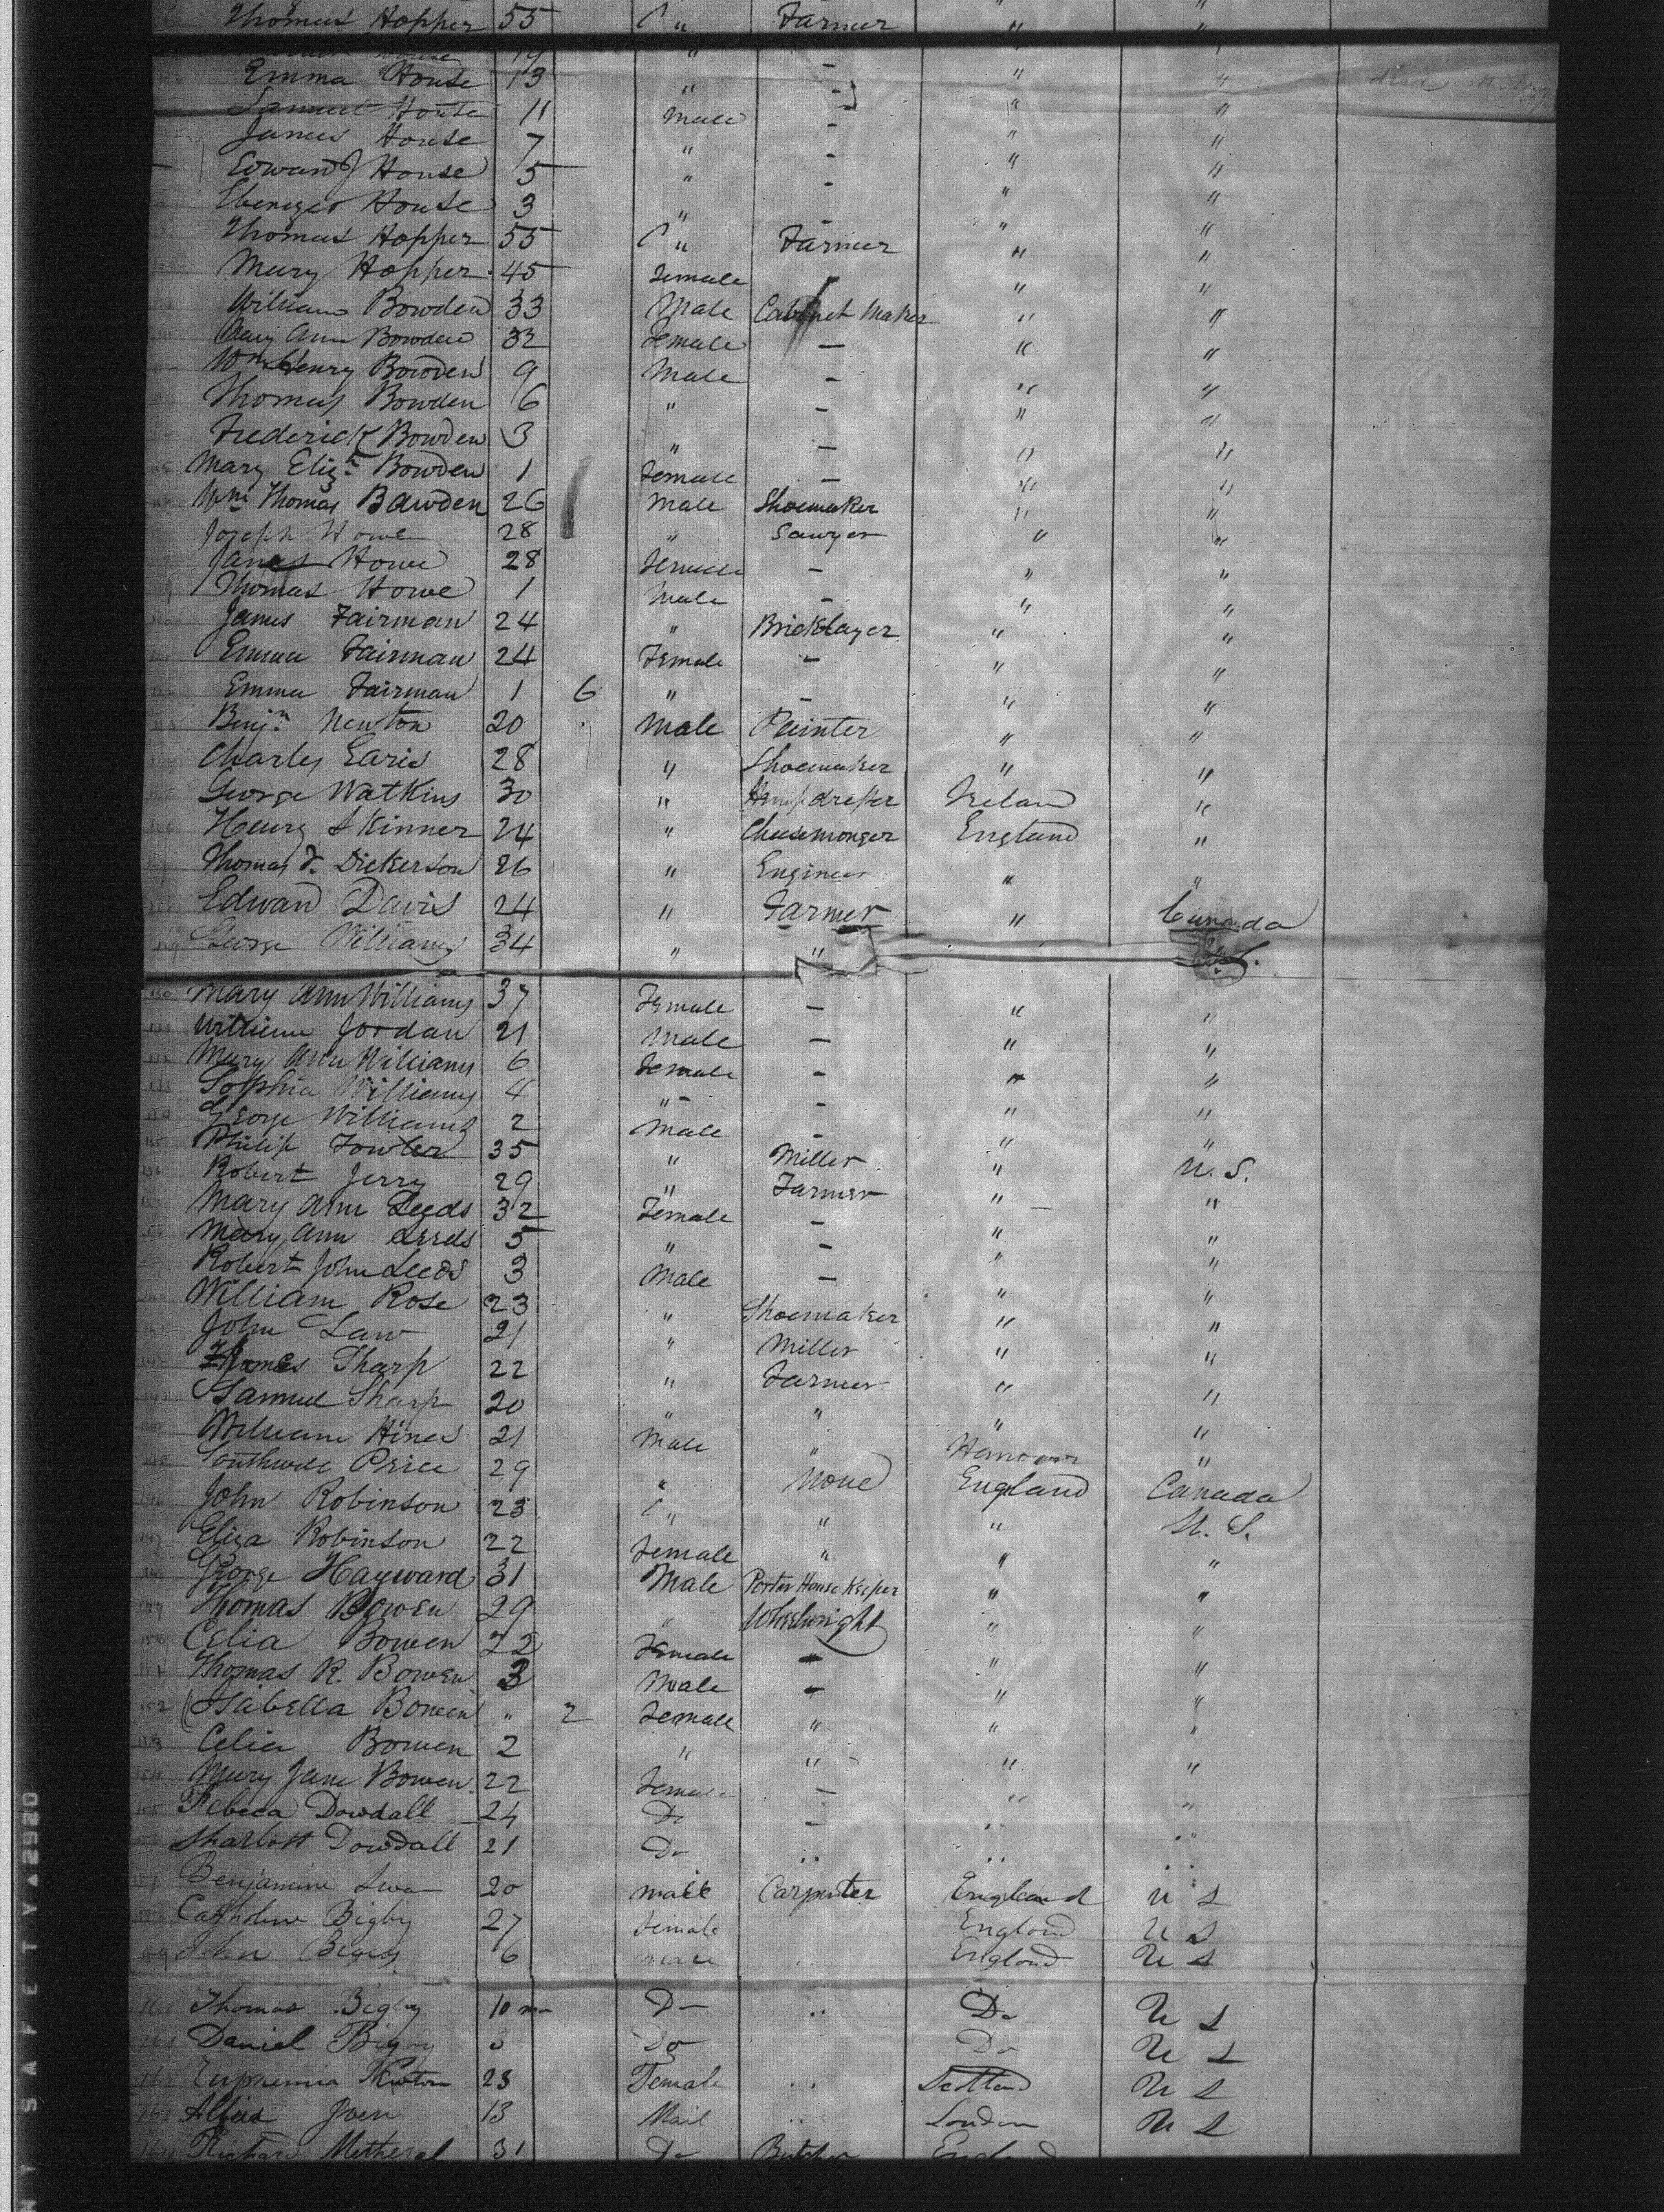 Thomas Hopper 55 " Farmer " "
19 " -
Emma House 13 " - " "
Samuel House 11 Male - " "
James House 7 " - " "
Edward J House 5 " - " "
Ebenezer House 3 " - " "
Thomas Hopper 55 " Farmer " "
Mary Hopper 45 Female " "
William Bowden 33 Male Cabinet Maker " "
Ann Bowden 32 Female - " "
Wm Henry Bowden 9 Male - " "
Thomas Bowden 6 " - " "
Frederick Bowden 3 " - " "
Mary Elizh Bowden 1 Female - " "
Wm Thomas Bawden 26 Male Shoemaker " "
Joseph Howe 28 " Sawyer " "
Howe 28 Female - " "
Thomas Howe 1 Male - " "
James Fairman 24 " Bricklayer " "
Emma Fairman 24 Female - " "
Emma Fairman 1 6 " - " "
Benjn Newton 20 Male Painter " "
Charles Earis 28 " Shoemaker " "
George Watkins 30 " Hempdresser Ireland "
Henry Skinner 24 " Cheesemonger England "
Thomas Dickerson 26 " Engineer " "
Edward Davis 24 " Farmer " Canada
129 George Williams 34 " "
130 Mary Ann Williams 37 Female - " "
131 William Jordan 21 Male - " "
132 Mary Ann Williams 6 Female - " "
133 Sophia Williams 4 " - " "
134 George Williams 2 Male - " "
135 Philip Fowler 35 " Miller " U. S.
136 Robert Jerry 29 " Farmer " "
137 Mary Ann Leeds 32 Female - " "
138 Mary Ann Leeds 5 " - " "
Robert John Leeds 3 Male - " "
William Rose 23 " Shoemaker " "
John Law 21 " Miller " "
142 Sharp 22 " Farmer " "
143 Samuel Sharp 20 " " " "
144 William Hines 21 Male " Hanover "
145 Price 29 " None England Canada
146 John Robinson 23 " " " U. S.
147 Eliza Robinson 22 Female " " "
148 George Hayward 31 Male Porter House Keeper " "
149 Thomas Bowen 29 " Wheelwright " "
150 Celia Bowen 22 Female " " "
151 Thomas R. Bowen 3 Male " " "
152 Isabella Bowen " 2 Female " " "
153 Celia Bowen 2 " " " "
154 Mary Jane Bowen 22 Female - " "
155 Rebeca Dowdall 24 Do - " "
156 Sharlott Dowdall 21 Do " " "
157 Benjamine 20 male Carpenter England U S
158 Bigby 27 Female England U S
159 John Bigby 6 male " England U S
160 Thomas Bigby 10 mo Do " Do U S
161 Daniel Bigby 3 Do Do U S
162 Euphemia Newton 23 Female " Scotland U S
163 13 Mail " London U S
164 Richard Metheral 31 Do Butcher England